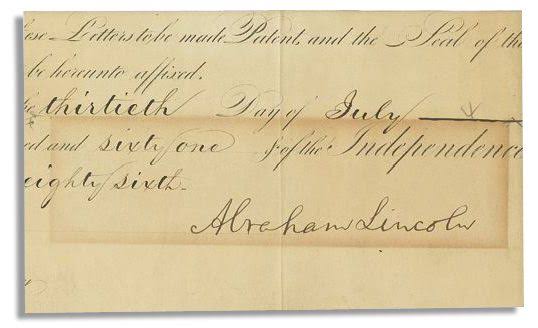 Letters to be made Patent, and the Seal of the
be hereunto affixed.
thirtieth Day of July
and sixty one & of the Independence
eighty sixth.
Abraham Lincoln